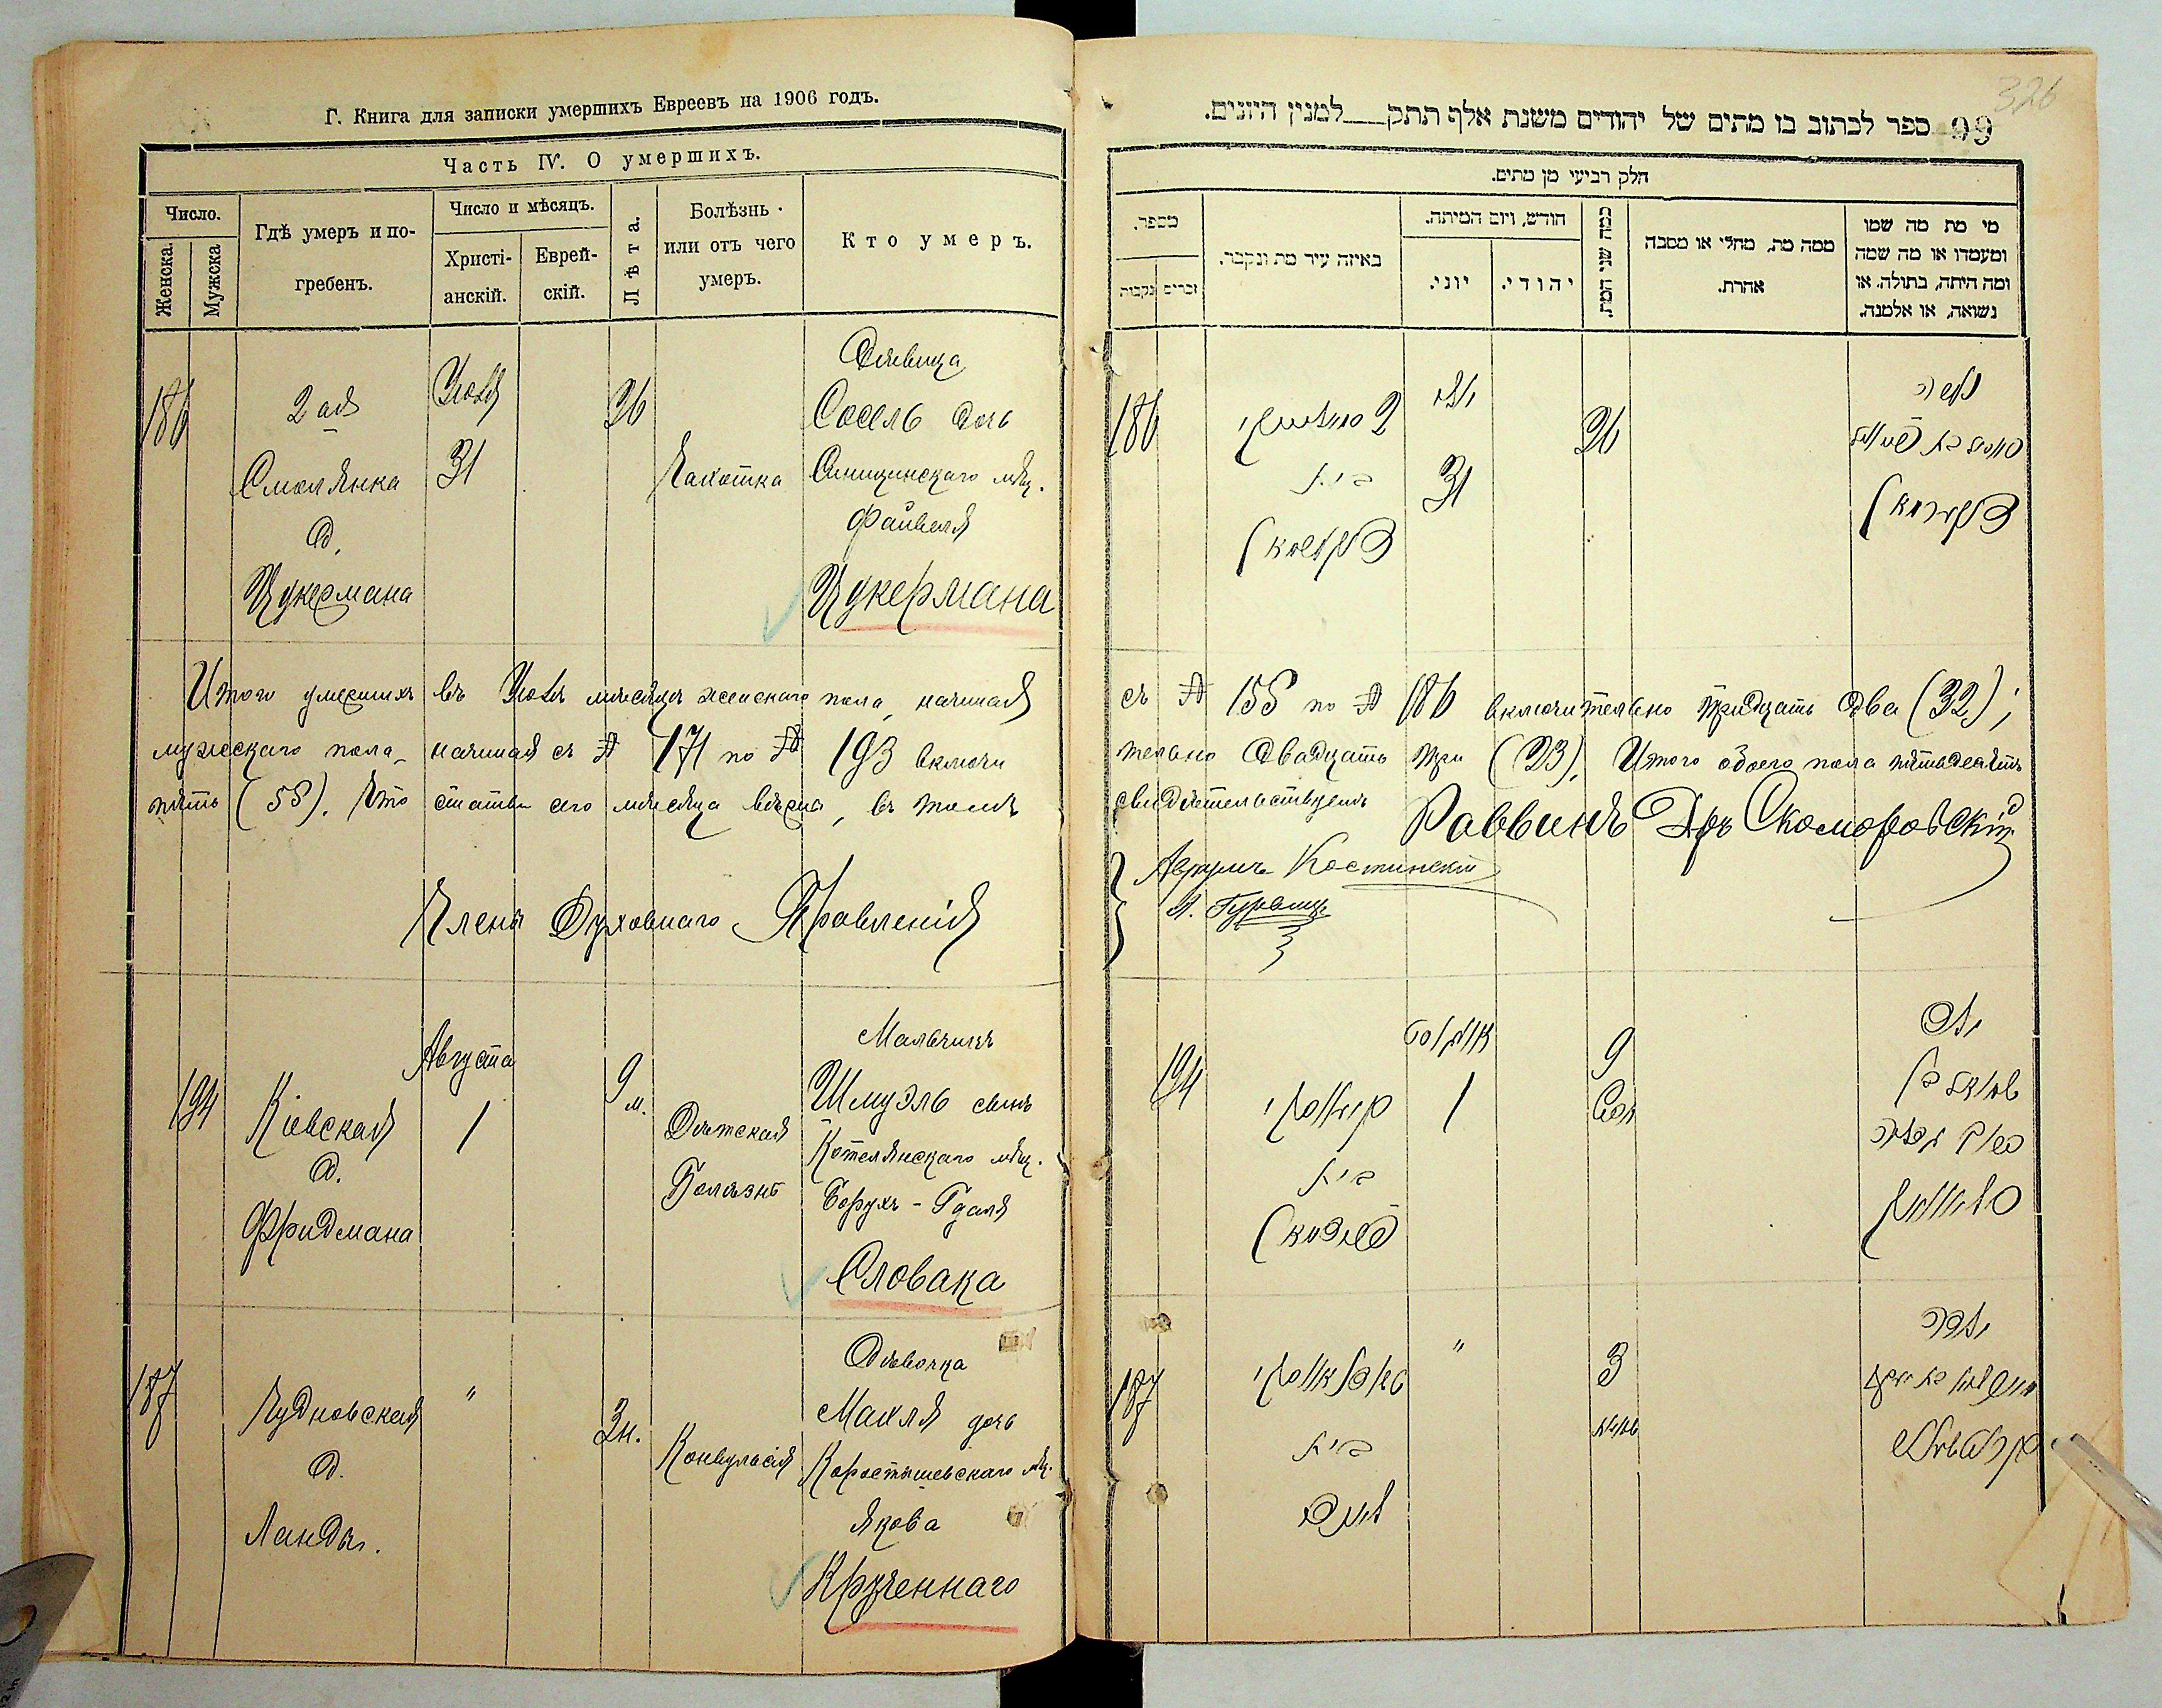 Г. Книга для записки умершихъ Евреевъ на 1906 годъ.
Часть IV. О умершихъ.
Число.
Женска
Мужска
Гдѣ умеръ и по-
гребенъ.
Число и мѣсяцъ.
Христі-
анскій.
Еврей-
скій.
Лѣта.
Болѣзнь
или отъ чего
умеръ.
Кто умеръ.
186
2 ая
Смолянка
д.
Цукермана
Іюля
31
36
Чахотка
Дѣвица
Сосель дочь
мѣщ.
Файвеля
Цукермана
Итого умершихъ въ Іюлѣ мѣсяцѣ женскаго пола, начиная
мужескаго пола, начиная съ № 171 по № 193 включи
пять (55). Что статьи сего мѣсяца вѣрны, въ томъ
Члены Духовнаго Правленія
194
Кіевская
д.
Фридмана
Августа
1
9
м.
Дѣтская
Болѣзнь
Мальчикъ
Шмуэль сынъ
Котелянскаго мѣщ.
Борухъ-Гдаля
Словака
187
Чудновская
д.
Ланды.
"
3 н.
Конвульсія
Дѣвочка
Махля дочь
Коростышевскаго мѣщ.
Якова
Крученнаго
326
99 ספר לכתוב בו מתים של יהודים משנת אלף תתק___למנין היונים.
חלק רביעי מן מתים.
מספר.
נקבות
זכרים
באיזה עיר מת ונקבר.
חודש, ויום המיתה.
יוני.
יהודי.
כמה שני המת.
ממה מת, מחלי או מסבה
אחרת.
מי מת מה שמו
ומעמדו או מה שמה
ומה היתה, בתולה, או
נשואה, או אלמנה.
186
2
בית
צוקערמאן
יולי
31
36
צוקערמאן
съ № 155 по № 186 включительно тридцать два (32);
тельно двадцать три (23). Итого обоего пола пятьдесятъ
свидѣтельствуемъ
Раввинъ Д-ръ Скоморовскій
Аврумъ Костинскій
194
בית
פרידמאן
אווגוסט
1
9
חדש
ילד
שמואל בן
ברוך גדליה
187
בית
לאנדא
"
3
שבועות
ילדה